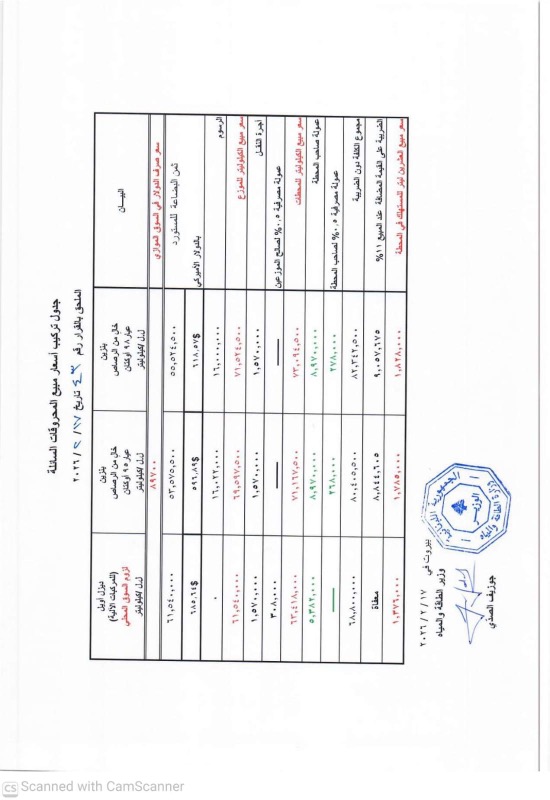 جدول تركيب أسعار مبيع المحروقات السائلة
الملحق بالقرار رقم تاريخ ١٧ / ٢ / ٢٠٢٦
البيـــان | بنزين خال من الرصاص عيار ٩٨ أوكتان ل.ل/كيلوليتر | بنزين خال من الرصاص عيار ٩٥ أوكتان ل.ل/كيلوليتر | ديزل أويل (للمركبات الآلية) لزوم السوق المحلي ل.ل/كيلوليتر
سعر صرف الدولار في السوق الموازي | ٨٩٧٠٠
ثمن البضاعة للمستورد | ٥٥,٥٢٤,٥٠٠ | ٥٣,٥٧٥,٥٠٠ | ٦١,٥٤٠,٠٠٠
بالدولار الأميركي | ٦١٨.٥٧$ | ٥٩٦.٨٩$ | ٦٨٥.٦٤$
الرسوم | ١٦,٠٠٠,٠٠٠ | ١٦,٠٢٢,٠٠٠ | ٠
سعر مبيع الكيلوليتر للموزع | ٧١,٥٢٤,٥٠٠ | ٦٩,٥٩٧,٥٠٠ | ٦١,٥٤٠,٠٠٠
أجرة النقل | ١,٥٧٠,٠٠٠ | ١,٥٧٠,٠٠٠ | ١,٥٧٠,٠٠٠
عمولة مصرفية ٠.٥% لصالح الموزعين | — | — | ٣٠٨,٠٠٠
سعر مبيع الكيلوليتر للمحطات | ٧٣,٠٩٤,٥٠٠ | ٧١,١٦٧,٥٠٠ | ٦٣,٤١٨,٠٠٠
عمولة صاحب المحطة | ٨,٩٧٠,٠٠٠ | ٨,٩٧٠,٠٠٠ | ٥,٣٨٢,٠٠٠
عمولة مصرفية ٠.٥% لصاحب المحطة | ٢٧٨,٠٠٠ | ٢٦٨,٠٠٠ | —
مجموع الكلفة دون الضريبة | ٨٢,٣٤٢,٥٠٠ | ٨٠,٤٠٥,٥٠٠ | ٦٨,٨٠٠,٠٠٠
الضريبة على القيمة المضافة عند المبيع ١١% | ٩,٠٥٧,٦٧٥ | ٨,٨٤٤,٦٠٥ | معفاة
سعر مبيع العشرين ليتر للمستهلك في المحطة | ١,٨٢٨,٠٠٠ | ١,٧٨٥,٠٠٠ | ١,٣٧٦,٠٠٠
بيروت في ١٧ / ٢ / ٢٠٢٦
وزير الطاقة والمياه
جوزيف الصدّي
الجمهورية اللبنانية
الوزير
وزارة الطاقة والمياه
CS Scanned with CamScanner